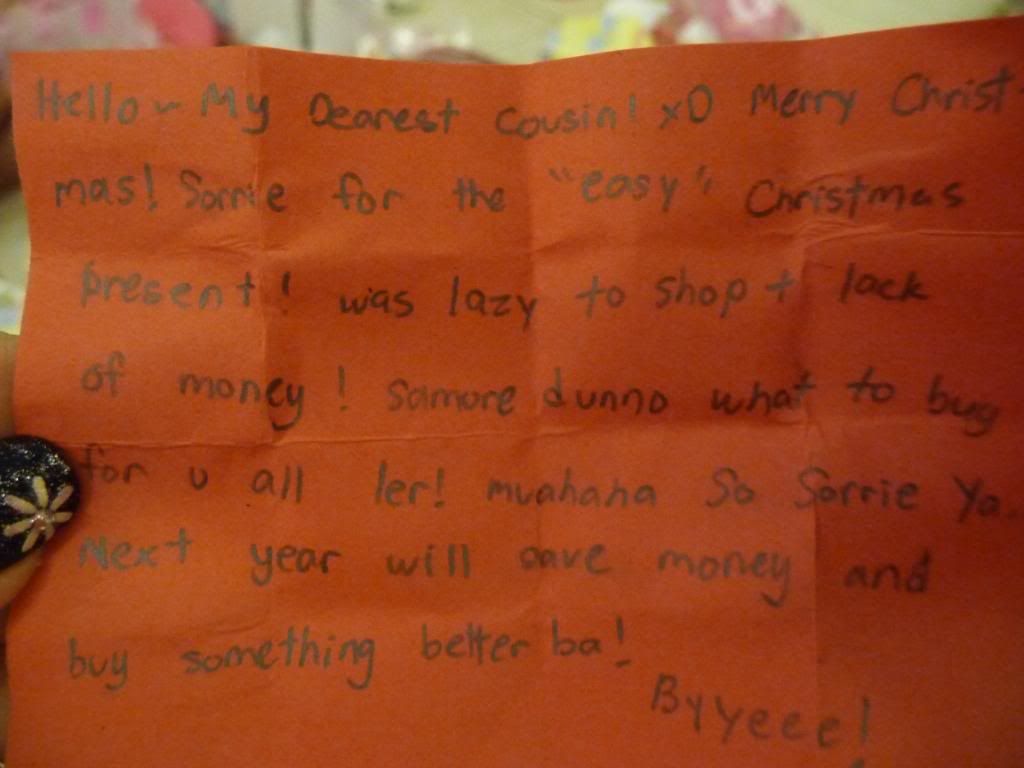 Hello~ My Dearest Cousin! xD Merry Christ-
mas! Sorrie for the "easy" Christmas
present! was lazy to shop + lack
of money! Samore dunno what to buy
for u all ler! muahaha So Sorrie Ya.
Next year will save money and
buy something better ba!
Byyeee!